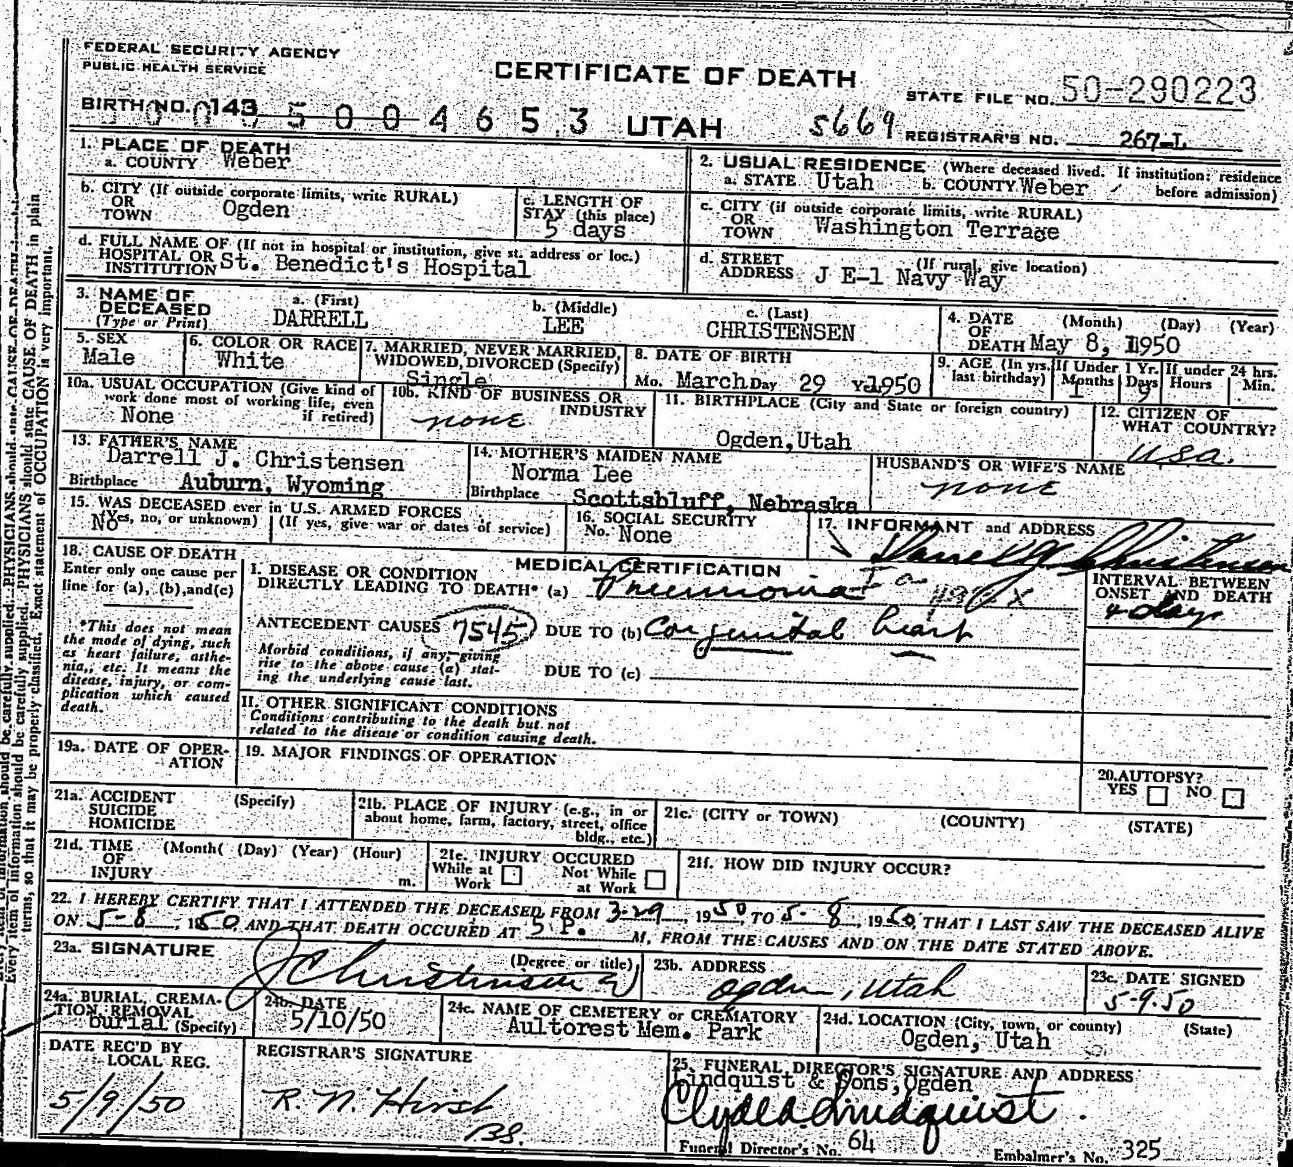 FEDERAL SECURITY AGENCY
PUBLIC HEALTH SERVICE
CERTIFICATE OF DEATH
STATE FILE NO. 50-290223
BIRTH NO. 143
5004653 UTAH 5669 REGISTRAR'S NO. 267-L
1. PLACE OF DEATH
a. COUNTY Weber
2. USUAL RESIDENCE (Where deceased lived. If institution: residence before admission)
a. STATE Utah b. COUNTY Weber
b. CITY (If outside corporate limits, write RURAL)
OR
TOWN Ogden
c. LENGTH OF
STAY (this place)
5 days
c. CITY (if outside corporate limits, write RURAL)
OR
TOWN Washington Terrace
d. FULL NAME OF (If not in hospital or institution, give st. address or loc.)
HOSPITAL OR
INSTITUTION St. Benedict's Hospital
d. STREET (If rural, give location)
ADDRESS J E-1 Navy Way
3. NAME OF
DECEASED
(Type or Print)
a. (First)
DARRELL
b. (Middle)
LEE
c. (Last)
CHRISTENSEN
4. DATE (Month) (Day) (Year)
OF
DEATH May 8, 1950
5. SEX
Male
6. COLOR OR RACE
White
7. MARRIED, NEVER MARRIED,
WIDOWED, DIVORCED (Specify)
Single
8. DATE OF BIRTH
Mo. March Day 29 Yr. 1950
9. AGE (In yrs. last birthday)
If Under 1 Yr.
Months 1 Days 9
If under 24 hrs.
Hours Min.
10a. USUAL OCCUPATION (Give kind of
work done most of working life, even
if retired)
None
10b. KIND OF BUSINESS OR
INDUSTRY
none
11. BIRTHPLACE (City and State or foreign country)
Ogden,Utah
12. CITIZEN OF
WHAT COUNTRY?
U.S.A.
13. FATHER'S NAME
Darrell J. Christensen
Birthplace Auburn, Wyoming
14. MOTHER'S MAIDEN NAME
Norma Lee
Birthplace Scottsbluff, Nebraska
HUSBAND'S OR WIFE'S NAME
none
15. WAS DECEASED ever in U.S. ARMED FORCES
(Yes, no, or unknown) (If yes, give war or dates of service)
No
16. SOCIAL SECURITY
No. None
17. INFORMANT and ADDRESS
Darrell J Christensen
18. CAUSE OF DEATH
Enter only one cause per
line for (a), (b),and(c)
*This does not mean
the mode of dying, such
as heart failure, asthe-
nia, etc. It means the
disease, injury, or com-
plication which caused
death.
MEDICAL CERTIFICATION
I. DISEASE OR CONDITION
DIRECTLY LEADING TO DEATH* (a) Pneumonia
INTERVAL BETWEEN
ONSET AND DEATH
4 days
ANTECEDENT CAUSES 7545 DUE TO (b) Congenital heart
Morbid conditions, if any, giving
rise to the above cause (a) stat-
ing the underlying cause last.
DUE TO (c)
II. OTHER SIGNIFICANT CONDITIONS
Conditions contributing to the death but not
related to the disease or condition causing death.
19a. DATE OF OPER-
ATION
19. MAJOR FINDINGS OF OPERATION
20. AUTOPSY?
YES NO
21a. ACCIDENT (Specify)
SUICIDE
HOMICIDE
21b. PLACE OF INJURY (e.g., in or
about home, farm, factory, street, office
bldg., etc.)
21c. (CITY or TOWN) (COUNTY) (STATE)
21d. TIME (Month( (Day) (Year) (Hour)
OF
INJURY m.
21e. INJURY OCCURED
While at Work
Not While at Work
21f. HOW DID INJURY OCCUR?
22. I HEREBY CERTIFY THAT I ATTENDED THE DECEASED FROM 3-29, 1950 TO 5-8, 1950, THAT I LAST SAW THE DECEASED ALIVE
ON 5-8, 1950 AND THAT DEATH OCCURED AT 5 P. M, FROM THE CAUSES AND ON THE DATE STATED ABOVE.
23a. SIGNATURE (Degree or title)
J Christensen
23b. ADDRESS
Ogden, Utah
23c. DATE SIGNED
5-9-50
24a. BURIAL, CREMA-
TION REMOVAL
burial (Specify)
24b. DATE
5/10/50
24c. NAME OF CEMETERY or CREMATORY
Aultorest Mem. Park
24d. LOCATION (City, town, or county) (State)
Ogden, Utah
DATE REC'D BY
LOCAL REG.
5/9/50
REGISTRAR'S SIGNATURE
R. N. Hirst
BS.
25. FUNERAL DIRECTOR'S SIGNATURE AND ADDRESS
Lindquist & Sons, Ogden
Clyde A Lindquist.
Funeral Director's No. 64 Embalmer's No. 325
Every item of information should be carefully supplied. PHYSICIANS should state CAUSE OF DEATH in plain
terms, so that it may be properly classified. Exact statement of OCCUPATION is very important.